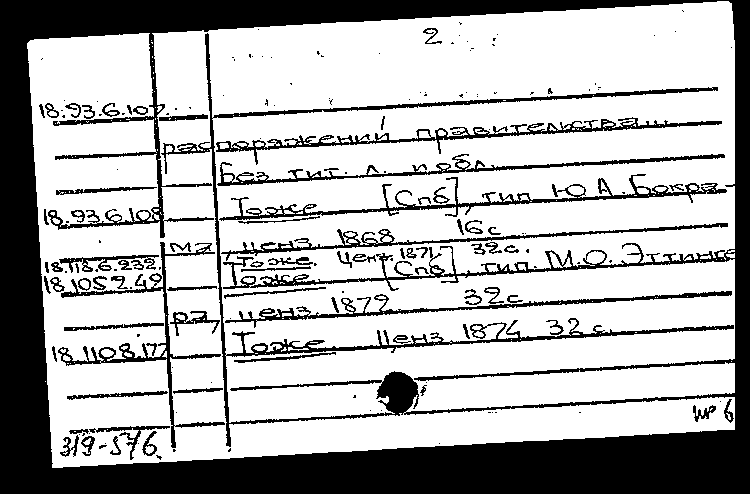 2.
18.93.6.107
распоряжений правительства...
Без тит. л. и обл.
18.93.6.108 Тоже [Спб], тип Ю.А. Бокра-
ма, ценз. 1868 16с
18.118.6.232 Тоже. Ценз. 1871. 32с.
18.105.9.49 Тоже. [Спб], тип. М.О. Эттинге
ра, ценз. 1879 32с
18.110.8.177 Тоже Ценз. 1874 32 с.
319-576.